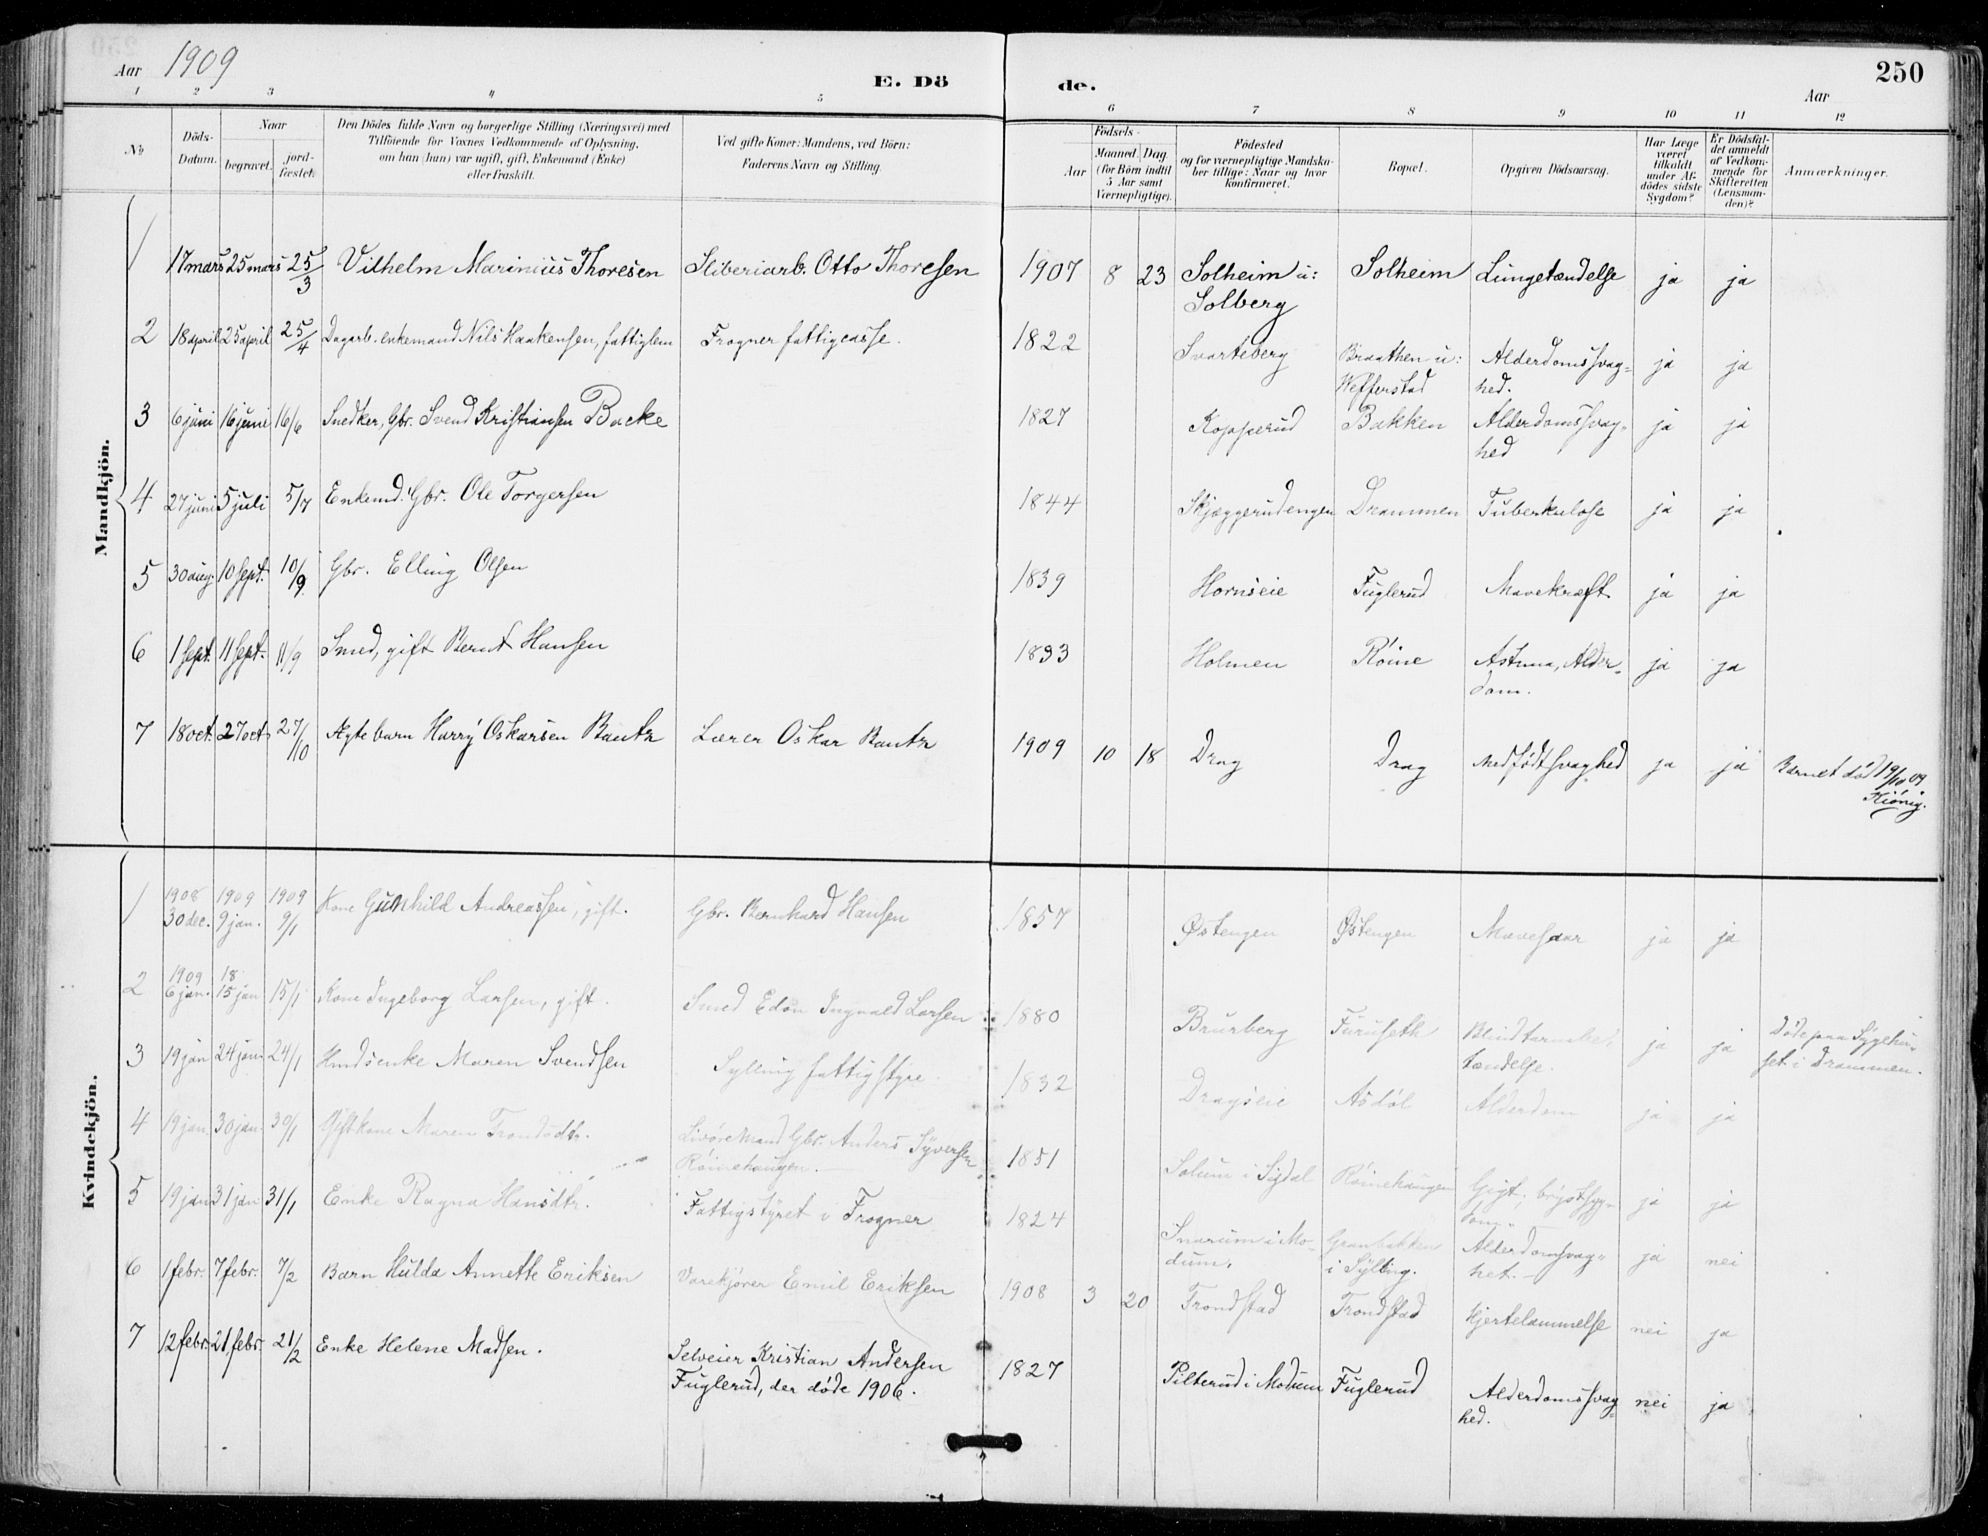 Aar 1909 E. Dö de. Aar 250
1 2 3 4 5 6 7 8 9 10 11 12
No Döds-Datum. Naar begravet. jord-fæstet. Den Dödes fulde Navn og borgerlige Stilling (Næringsvei) med Tilföiende for Voxnes Vedkommende af Oplysning, om han (hun) var ugift, gift, Enkemand (Enke) eller fraskilt. Ved gifte Koner: Mandens, ved Börn: Faderens Navn og Stilling. Födsels- Aar Maaned. Dag (for Börn indtil 5 Aar samt Værnepligtige). Födested og for værnepligtige Mandskaber tillige: Naar og hvor konfirmeret. Bopæl. Opgiven Dödsaarsag. Har Læge været tilkaldt under Afdödes sidste Sygdom? Er Dödsfaldet anmeldt af Vedkommende for Skifteretten (Lensmanden)? Anmærkninger.
Mandkjön.
1 17 mars 25 mars 25/3 Vilhelm Marinius Thoresen Sliberiarb. Otto Thoresen 1907 8 23 Solheim u: Solberg Solheim Lungetændelse ja ja
2 18 april 25 april 25/4 Dagarb. enkemand Nils Haakensen, fattiglem Frogner fattigcasse. 1822 Svarteberg Braathen u: Wefferstad Alderdomssvag-hed. ja ja
3 6 juni 16 juni 16/6 Snedker, Gbr. Svend Kristiansen Backe 1827 Kopperud Bakken Alderdomssvag-hed ja ja
4 27 juni 5 juli 5/7 Enkemd. Gbr. Ole Torgersen 1844 Skjæggerudengen Drammen Tuberkulose ja ja
5 30 aug. 10 sept. 10/9 Gbr. Elling Olsen 1839 Hornseie Fuglerud Mavekræft ja ja
6 1 sept. 11 sept. 11/9 Smed, gift Bernt Hansen 1833 Holmen Røine Astma, Alder-dom. ja ja
7 18 oct. 27 oct. 27/10 Ægte barn Harry Oskarsen Bautz Lærer Oskar Bautz 1909 10 18 Drag Drag Medfødt svaghed ja ja Barnet død 19/10 09. Kiønig.
Kvindekjön.
1 1908 30 dec. 1909 9 jan. 1909 9/1 Kone Gunhild Andreassen, gift. Gbr. Bernhard Hansen 1857 Østengen Østengen Mavesaar ja ja
2 1909 6 jan. 18 15 jan 15/1 Kone Ingeborg Larsen, gift. Smed Edvin Ingvald Larsen 1880 Brurberg Furuseth Blindtarmsbe-tændelse. ja ja Døde paa Sygehu-set i Drammen.
3 19 jan 24 jan. 24/1 Hmdsenke Maren Svendsen Sylling fattigstyre. 1832 Dragseie Asdøl Alderdom ja ja
4 19 jan. 30 jan. 30/1 Gift kone Maren Trondsdtr. Livøremand Gbr. Anders Syversen Røinehaugen. 1851 Solum i Sigdal Røinehaugen Gigt, brystsyg-dom. ja ja
5 19 jan 31 jan 31/1 Enke Ragna Hansdtr. Fattigstyret i Frogner 1824 Snarum i Mo-dum. Granbakken i Sylling. Alderdomssvag-het. ja nei
6 1 febr. 7 febr. 7/2 Barn Hulda Annette Eriksen Varekjører Emil Eriksen 1908 3 20 Trondstad Trondstad Hjertelammelse nei ja
7 12 febr. 21 febr. 21/2 Enke Helene Madsen. Selveier Kristian Andersen Fuglerud, der døde 1906. 1827 Pilterud i Modum Fuglerud Alderdomssvag-hed. nei ja